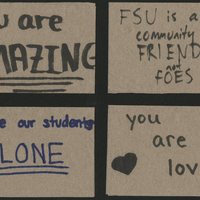 u are
MAZING
FSU is a
community
FRIEND
not
FOES
e our students
LONE
you
are
lov